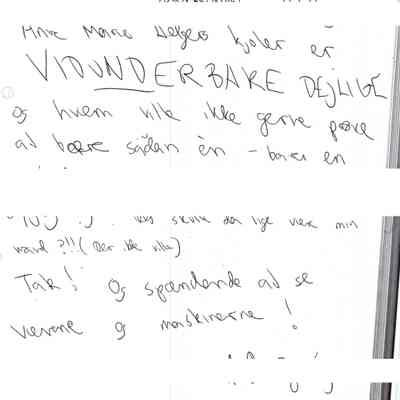 Anne Marie Helgers kjoler er
VIDUNDERBARE DEJLIGE
og hvem ville ikke gerne prøve
at bære sådan èn - bare en
ikke skulle der lige være min
mand ?!!! (Der ikke ville)
Tak! Og spændende at se
væverne og maskinerne !